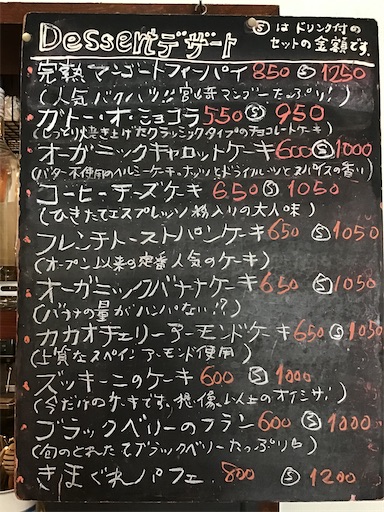 Dessert デザート
Ⓢは ドリンク付の
セットの金額です。
完熟マンゴートフィンパイ 850 Ⓢ 1250
(人気バクハツ!!宮崎マンゴーたっぷり!)
ガトー・オ・ショコラ 550 Ⓢ 950
(しっとり焼き上げたクラッシックタイプのチョコレートケーキ)
オーガニックキャロットケーキ 600 Ⓢ 1000
(バター不使用のヘルシーケーキ。ナッツとドライフルーツとスパイスの香り)
コーヒーチーズケーキ 650 Ⓢ 1050
(ひきたてエスプレッソ粉入りの大人味)
フレンチトーストパンケーキ 650 Ⓢ 1050
(オープン以来の定番人気のケーキ)
オーガニックバナナケーキ 650 Ⓢ 1050
(バナナの量がハンパない!?)
カカオチェリーアーモンドケーキ 650 Ⓢ 1050
(上質なスペインアーモンド使用)
ズッキーニのケーキ 600 Ⓢ 1000
(今だけのケーキです。想像以上のオイシサ!)
ブラックベリーのフラン 600 Ⓢ 1000
(旬のとれたてブラックベリーたっぷり)
きまぐれパフェ 800 Ⓢ 1200